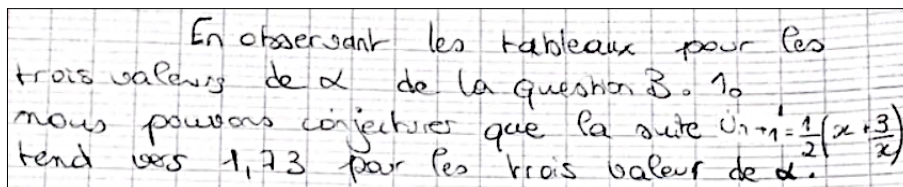 En observant les tableaux pour les
trois valeurs de α de la question B. 1.
nous pouvons conjecturer que la suite Un+1 = 1/2 (x + 3/x)
tend vers 1,73 pour les trois valeur de α.